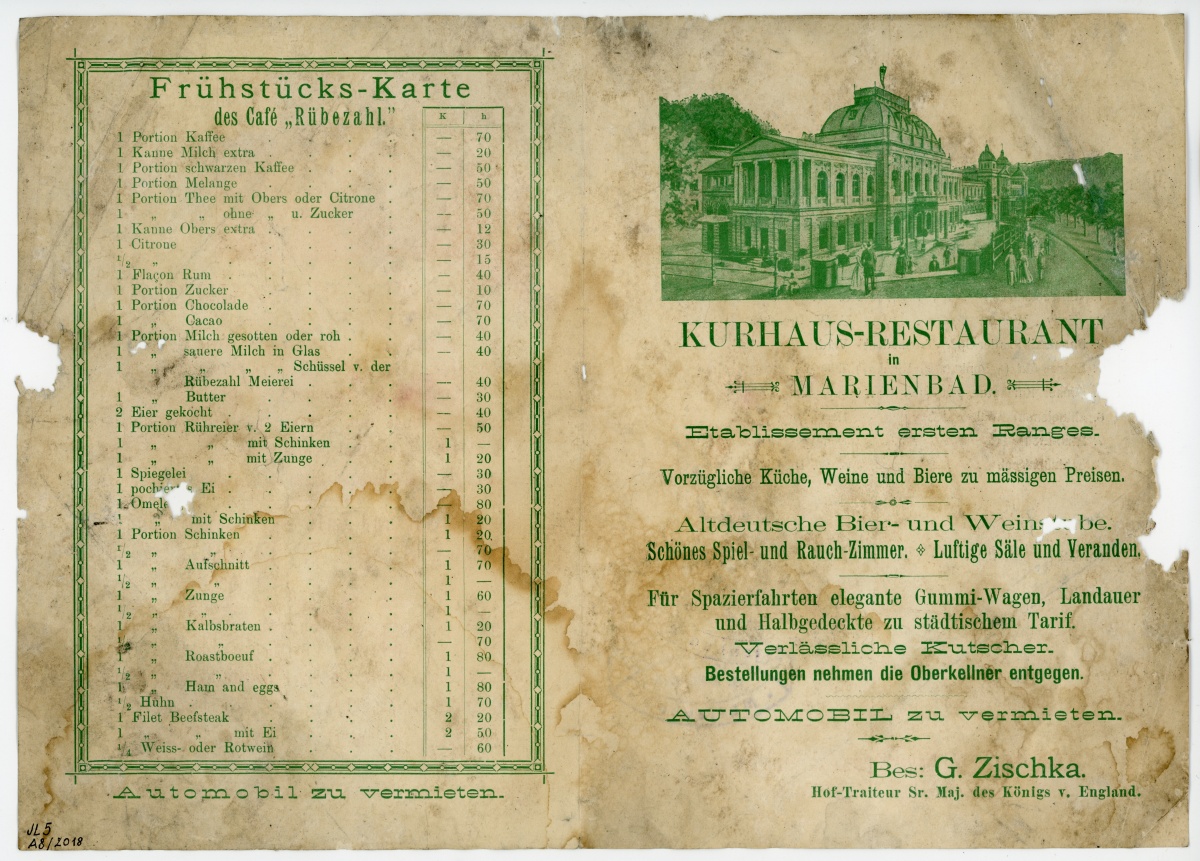 Frühstücks-Karte
des Café „Rübezahl."
K h
1 Portion Kaffee — 70
1 Kanne Milch extra — 20
1 Portion schwarzen Kaffee — 50
1 Portion Melange — 50
1 Portion Thee mit Obers oder Citrone — 70
1 „ „ ohne „ u. Zucker — 50
1 Kanne Obers extra — 12
1 Citrone — 30
1/2 „ — 15
1 Flaçon Rum — 40
1 Portion Zucker — 10
1 Portion Chocolade — 70
1 „ Cacao — 70
1 Portion Milch gesotten oder roh — 40
1 „ sauere Milch in Glas — 40
1 „ „ „ „ Schüssel v. der
Rübezahl Meierei — 40
1 „ Butter — 30
2 Eier gekocht — 40
1 Portion Rühreier v. 2 Eiern — 50
1 „ „ mit Schinken 1 —
1 „ „ mit Zunge 1 20
1 Spiegelei — 30
1 Ei — 30
1 — 80
1 „ mit Schinken 1 20
1 Portion Schinken 1 20
1/2 „ „ — 70
1 „ Aufschnitt 1 70
1/2 „ „ 1 —
1 „ Zunge 1 60
1/2 „ „ 1 —
1 „ Kalbsbraten 1 20
„ „ — 70
1 „ Roastboeuf 1 80
1/2 „ „ 1 —
1 „ Ham and eggs 1 80
1/2 Huhn 1 70
1 Filet Beefsteak 2 20
1 „ „ mit Ei 2 50
1/4 Weiss- oder Rotwein — 60
Automobil zu vermieten.
JL5
A8/2018
KURHAUS-RESTAURANT
in
MARIENBAD.
Etablissement ersten Ranges.
Vorzügliche Küche, Weine und Biere zu mässigen Preisen.
Altdeutsche Bier- und
Schönes Spiel- und Rauch-Zimmer. Luftige Säle und Veranden.
Für Spazierfahrten elegante Gummi-Wagen, Landauer
und Halbgedeckte zu städtischem Tarif.
Verlässliche Kutscher.
Bestellungen nehmen die Oberkellner entgegen.
AUTOMOBIL zu vermieten.
Bes: G. Zischka.
Hof-Traiteur Sr. Maj. des Königs v. England.